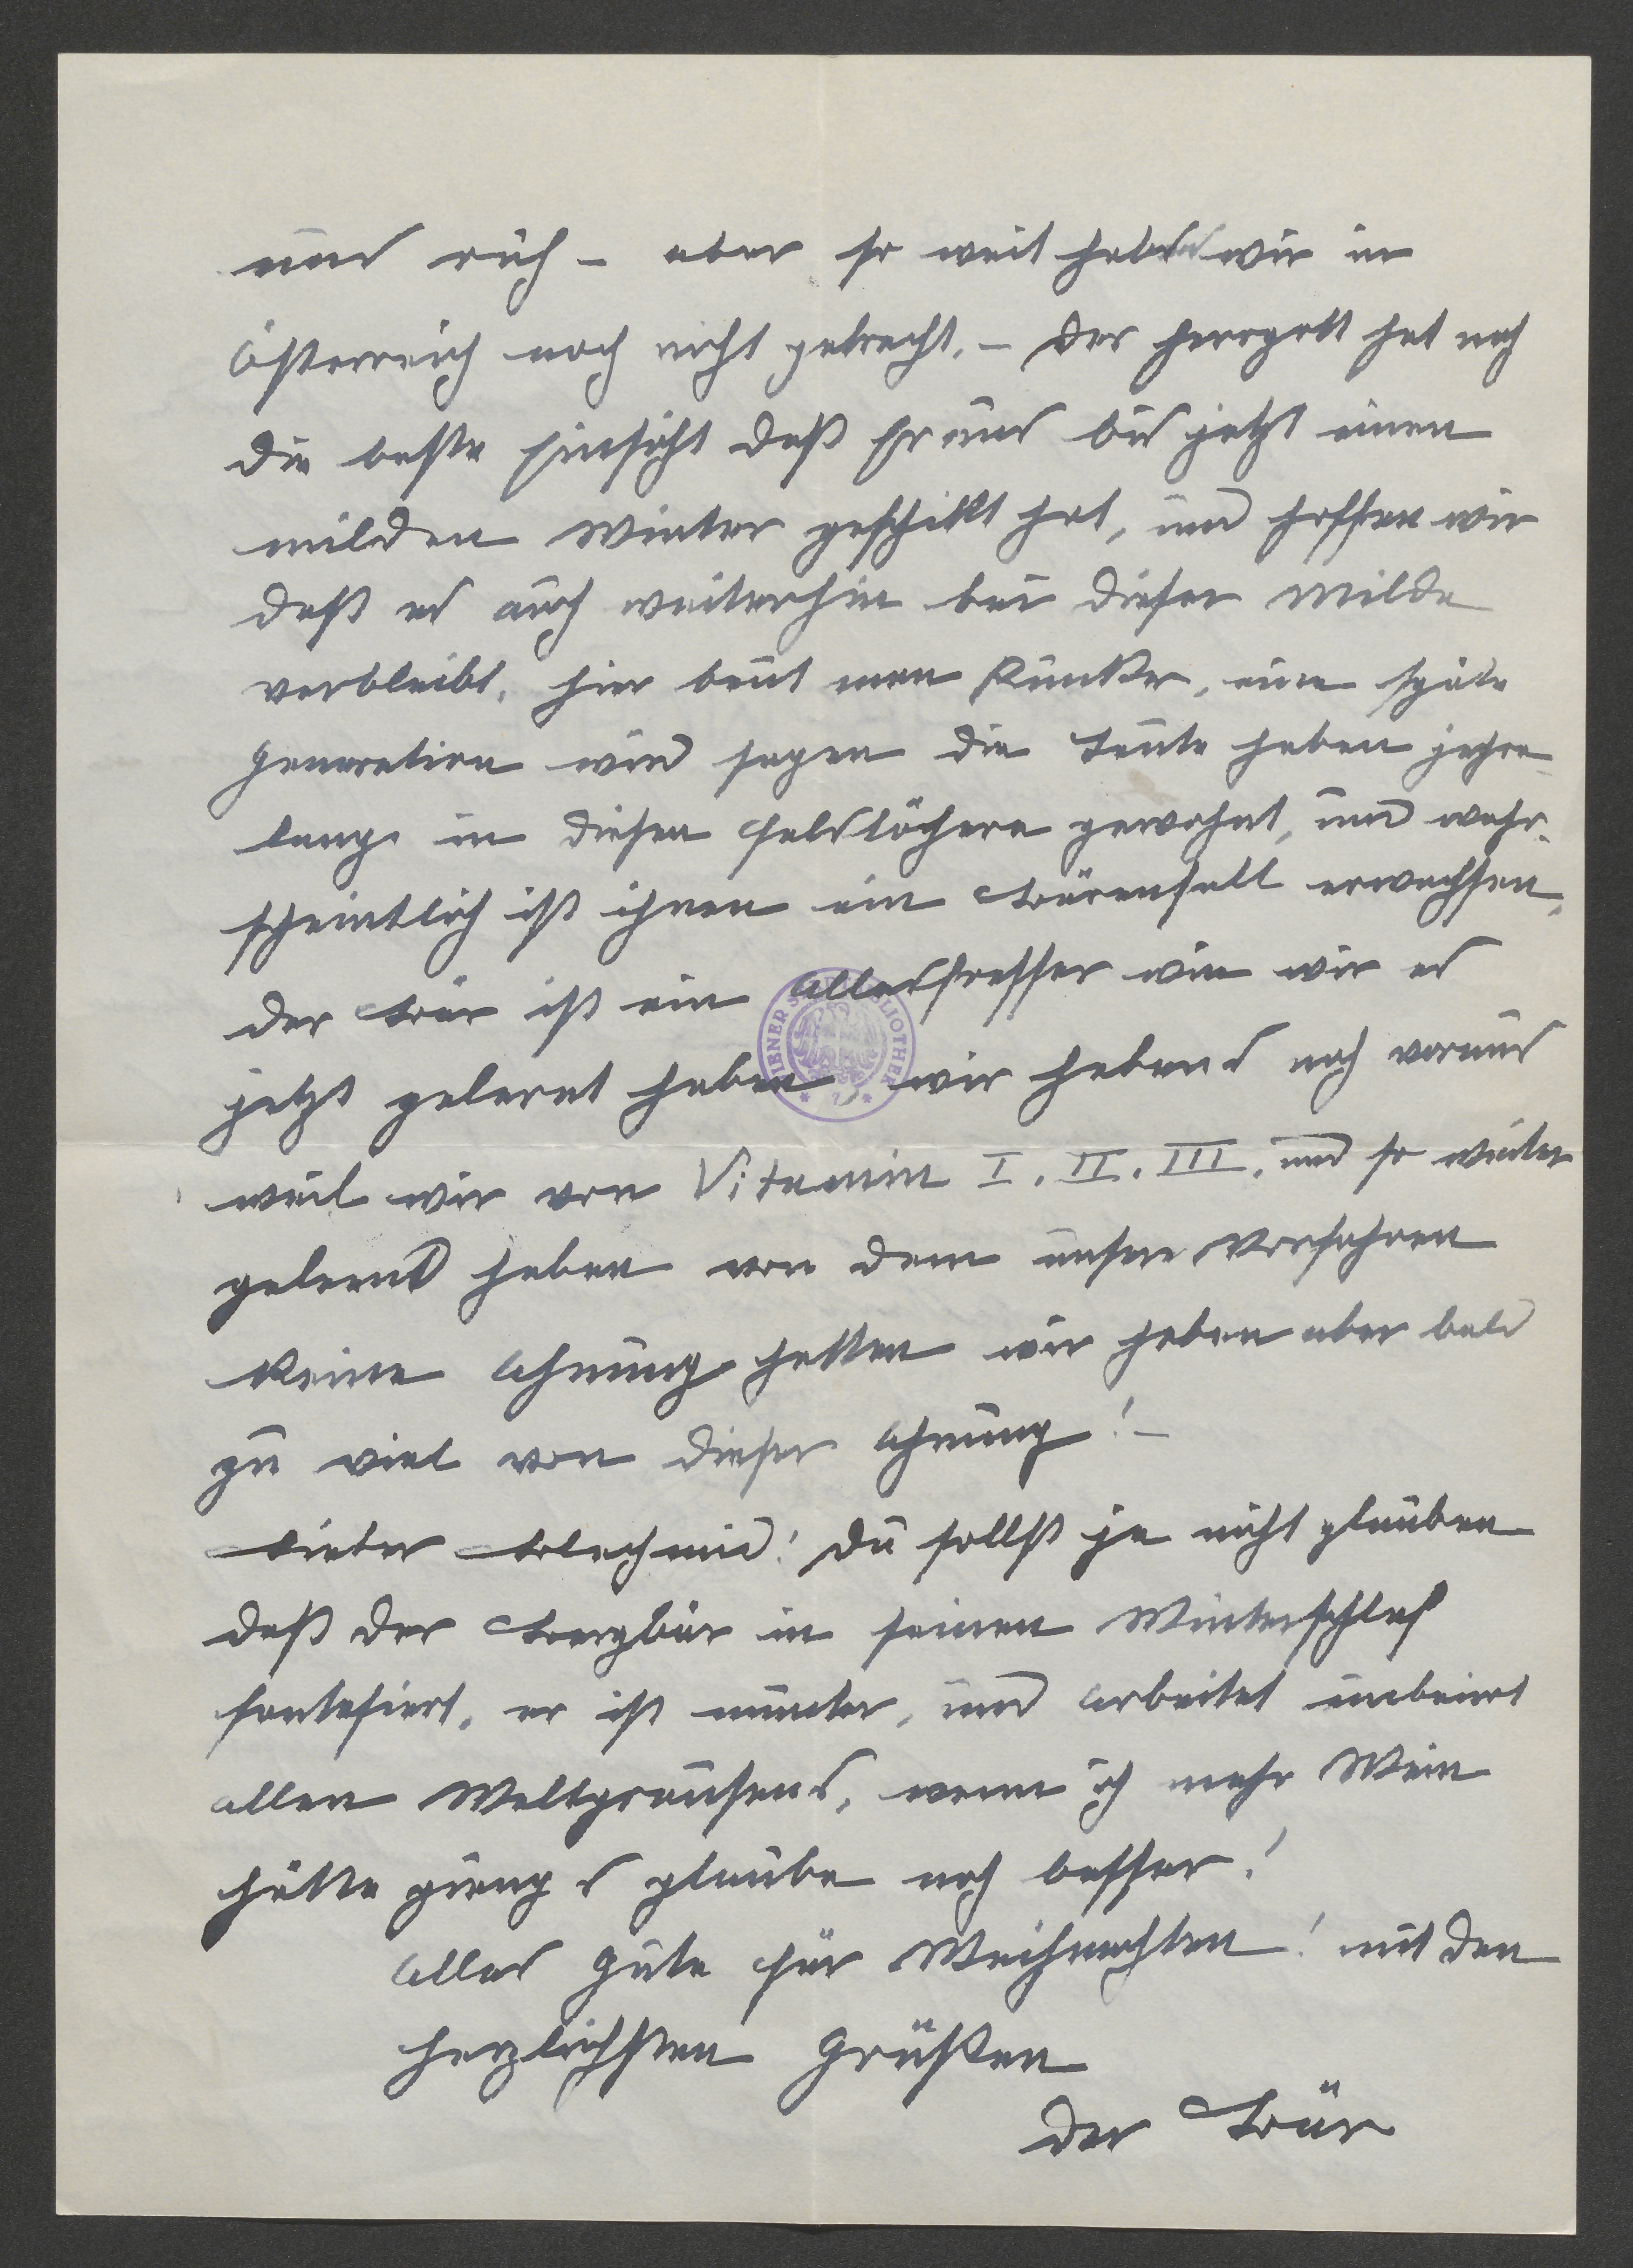 uns auch - aber so weit haben wir in
Österreich noch nicht gebracht. - Der Herrgott hat noch
die beste Einsicht daß Er uns bis jetzt einen
milden Winter geschikt hat, und hoffen wir
daß es auch weiterhin bei dieser Milde
verbleibt. Hier baut man Bunker, eine späte
Generation wird sagen die Leute haben jahre
lang in diesen Felslöchern gewohnt, und wahr-
scheintlich ist ihnen ein Bärenfell erwachsen,
der Bär ist ein Allesfresser wie wir es
jetzt gelernt haben wir habens noch voraus
weil wir von Vitamin I. II. III. und so weiter
gelernd haben von dem unsere Vorfahren
keine Ahnung hatten wir haben aber bald
zu viel von dieser Ahnung! -
Lieber Blechmid! Du sollst ja nicht glauben
daß der Bergbär in seinen Winterschlaf
fantasiert, er ist munter, und arbeitet unbeirt
allen Weltgrausens, wenn ich mehr Wein
hätte gieng s glaube noch besser!
Alles Gute für Weihnachten! mit den
herzlichsten Grüßen
der Bär
WIENER STADTBIBLIOTHEK